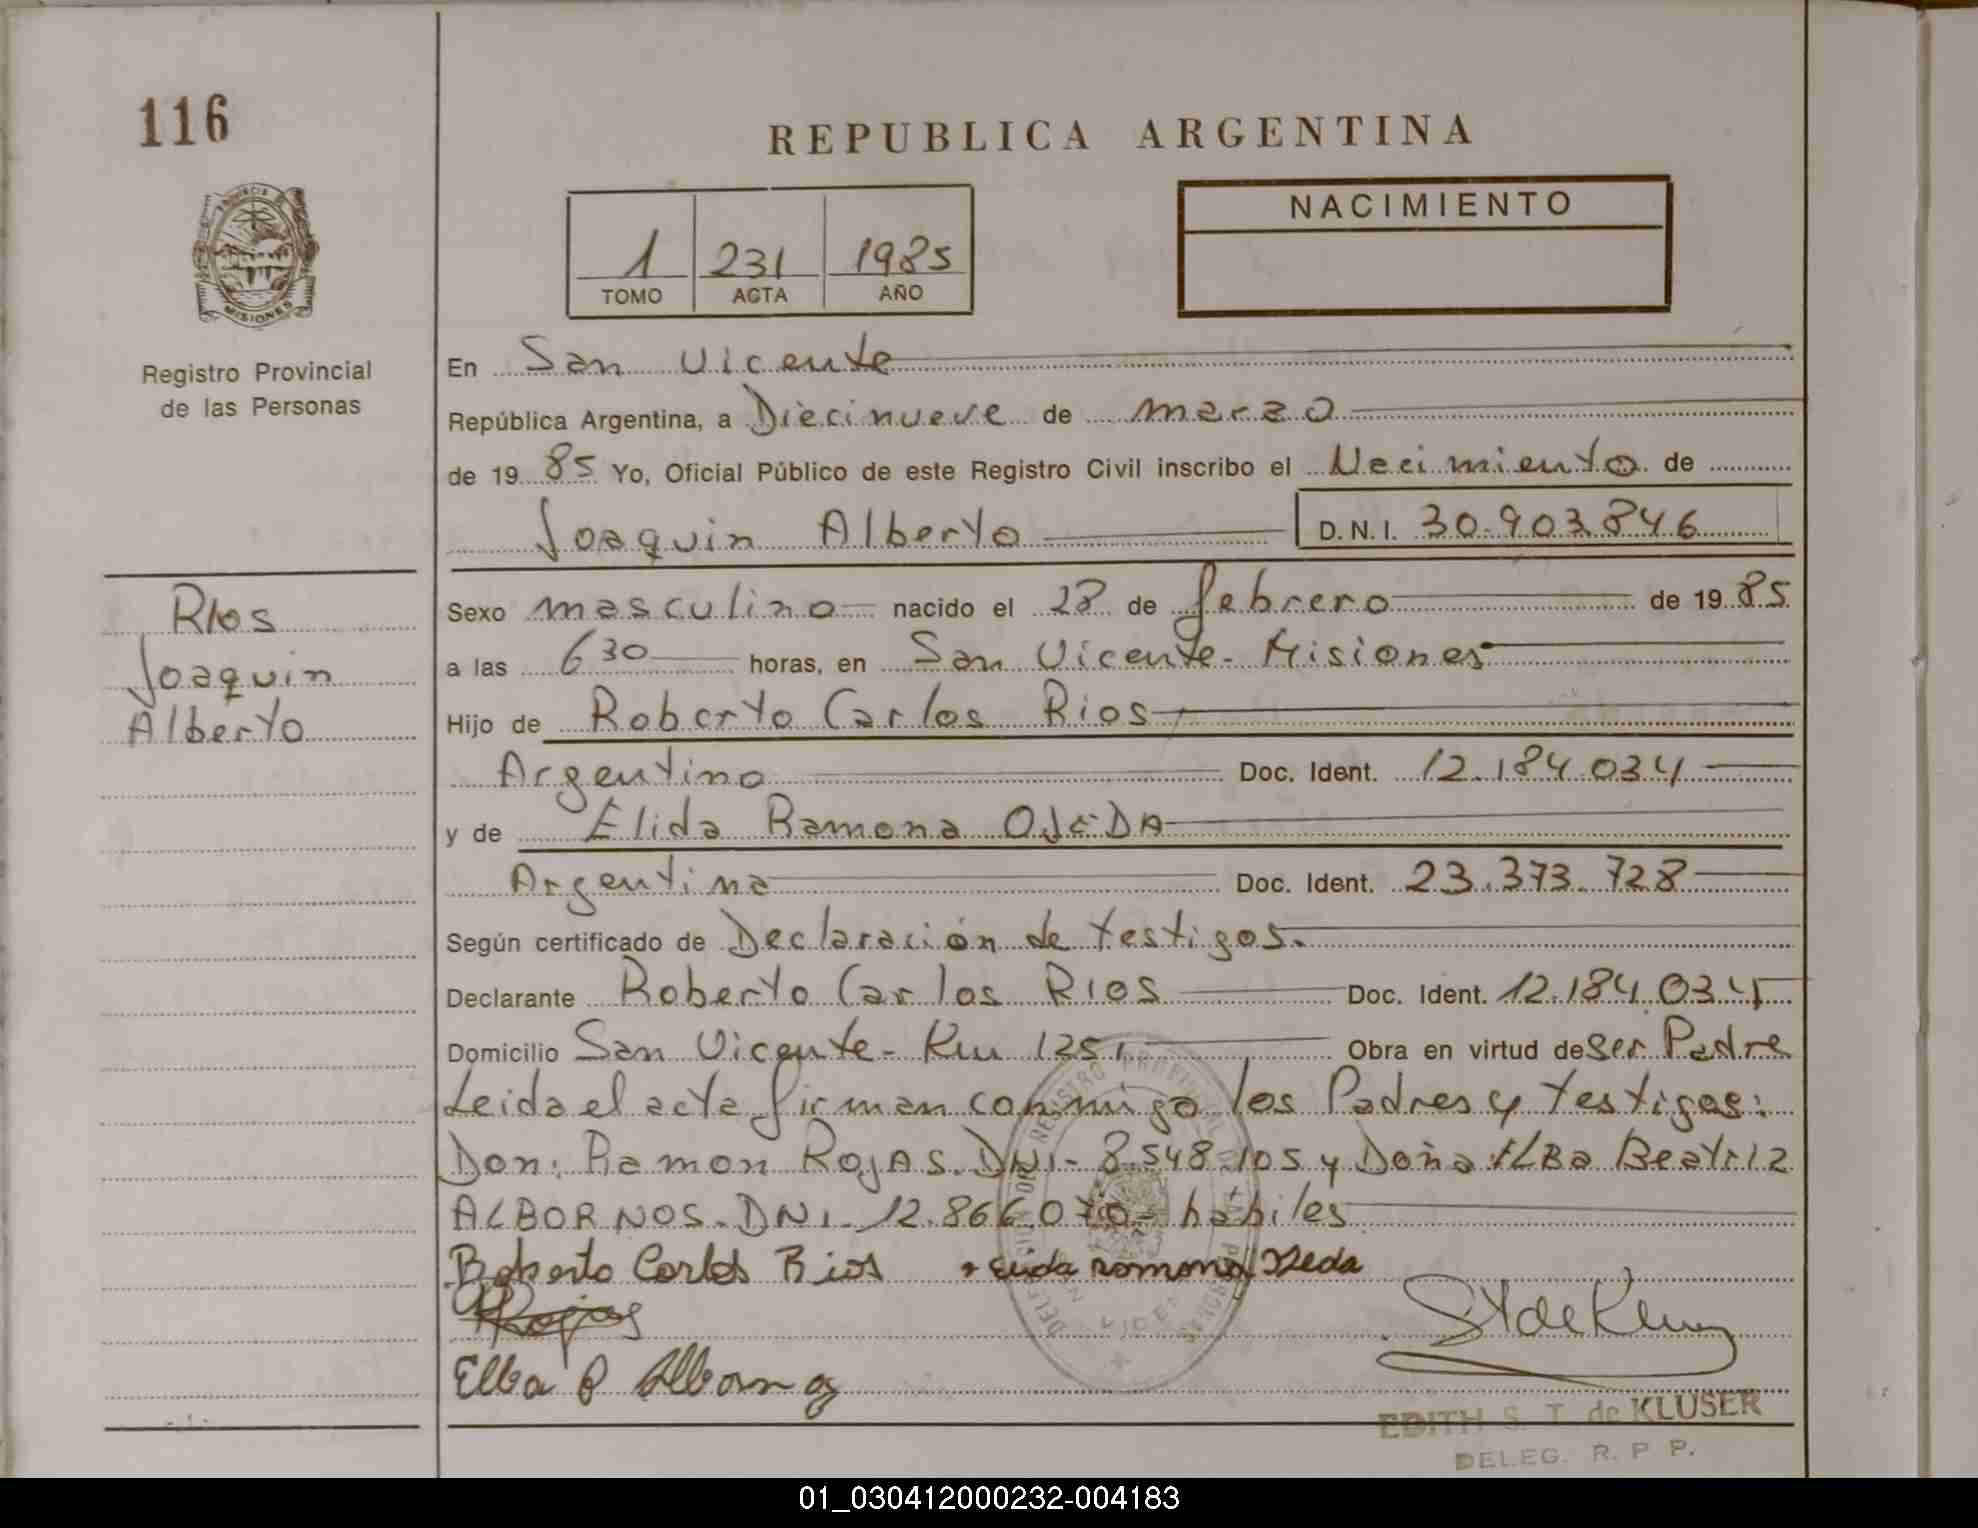 116
REPUBLICA ARGENTINA
NACIMIENTO
1 231 1985
TOMO ACTA AÑO
PROVINCIA DE
MISIONES
Registro Provincial
de las Personas
En San Vicente
República Argentina, a Diecinueve de marzo
de 19 85 Yo, Oficial Público de este Registro Civil inscribo el Nacimiento de
Joaquin Alberto D.N.I. 30.903.846
Rios
Joaquin
Alberto
Sexo masculino nacido el 28 de febrero de 19 85
a las 6 30 horas, en San Vicente - Misiones
Hijo de Roberto Carlos Rios
Argentino Doc. Ident. 12.184.034
y de Elida Ramona OJEDA
Argentina Doc. Ident. 23.373.728
Según certificado de Declaración de testigos.
Declarante Roberto Carlos Rios Doc. Ident. 12.184.034
Domicilio San Vicente - Km 1251 Obra en virtud de ser Padre
Leida el acta firman conmigo los Padres y testigos:
Don: Ramon ROJAS. DNI - 8.548.105 y Doña ELBa Beatriz
ALBORNOS. DNI. 12.866.070 - habiles
Roberto Carlos Rios Elida ramona Ojeda
Rojas
Elba B Albornoz
EDITH S. T. de KLUSER
DELEG. R. P P.
01_030412000232-004183